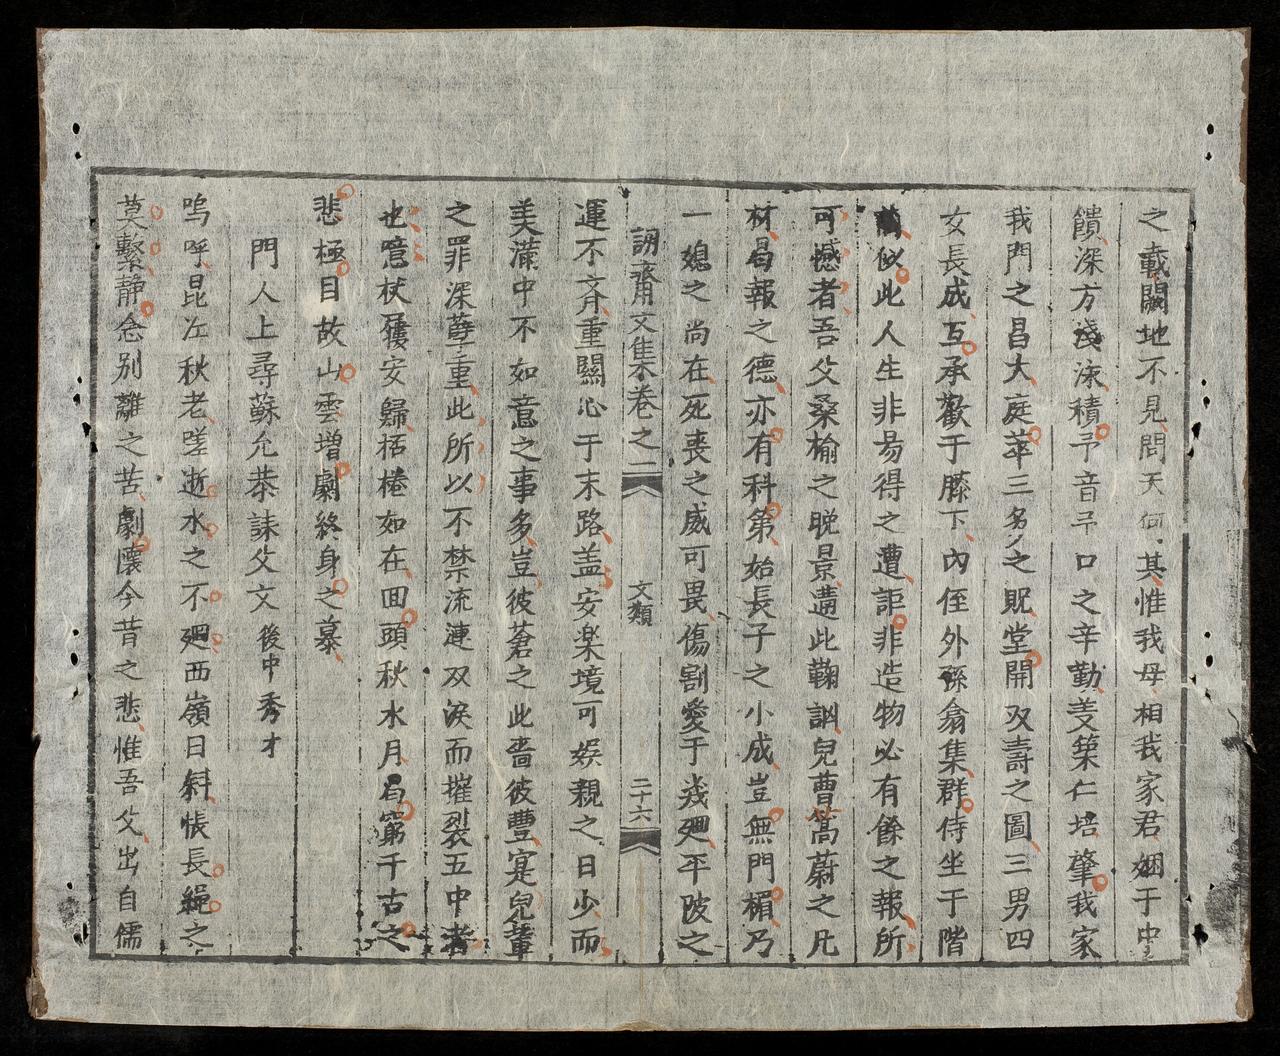 之載闢地不見問天何其惟我母相我家君姻于中
饋深方淺泳積予音予口之辛勤㳟築仁培肇我家
我門之昌大庭萃三多之貺堂開双壽之圖三男四
女長成互承歡于膝下內侄外孫翕集群侍坐于階
蘭似此人生非易得之遭詎非造物必有餘之報所
可憾者吾父桑榆之晚景遘此鞠訓兒曹蒿蔚之凡
材曷報之德亦有科第始長子之小成豈無門楣乃
一媳之尚在死喪之威可畏傷割愛于幾廻平陂之
詞齋文集卷之二 文類 二十六
運不齊重關心于末路盖安楽境可娛親之日少而
美滿中不如意之事多豈彼蒼之此嗇彼豐寔兒輩
之罪深孽重此所以不禁流漣双淚而摧裂五中者
也噫杖屨安歸栝棬如在囬頭秋水月
窮千古之
悲極目故山雲增劇終身之慕
門人上尋蘇允恭誄父文 後中秀才
嗚呼昆丘秋老嗟逝水之不廻西嶺日斜悵長繩之
莫繫静念别離之苦劇懷今昔之悲惟吾父出自儒